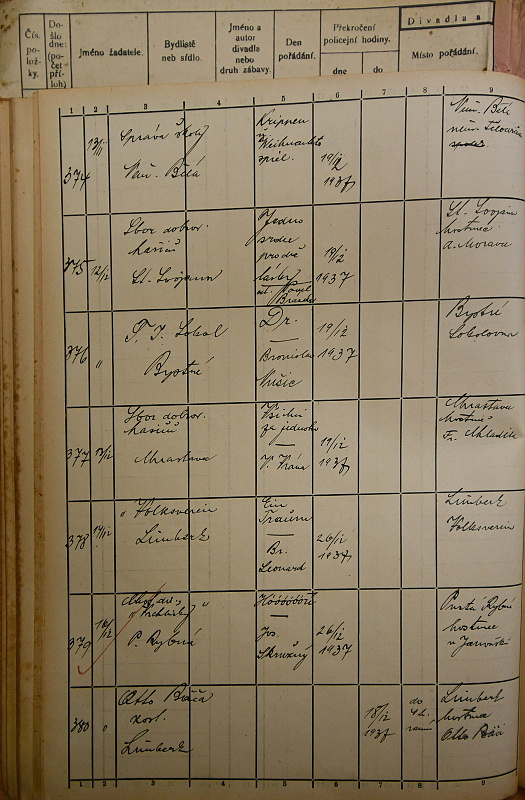 Čís. po- lož- ky.
Do- šlo dne: (po- čet pří- loh)
Jméno žadatele.
Bydliště neb sídlo.
Jméno a autor divadla nebo druh zábavy.
Den pořádání.
Překročení policejní hodiny.
dne
do
Divadla a
Místo pořádání.
1 2 3 4 5 6 7 8 9
374
13/12
Správa školy
Něm. Bělá
Krippen
Weihnachts
spiel.
19/12
1937
Něm. Bělá
něm. tělocvična
375
12/12
Sbor dobrov.
hasičů
St. Svojanov
Jedno
srdce
prodě
lásky
Pavel
19/12
1937
St. Svojanov
hostinec
A. Morava
376
"
T. J. Sokol
Bystré
Dr.
—
Bronislav
Nušič
19/12
1937
Bystré
Sokolovna
377
13/12
Sbor dobrov.
hasičů
Všichni
za jednoho
—
V. Vrána
19/12
1937
hostinec
Fr.
378
14/12
" Volksverein
Limberk
Ein
Traum
—
Br.
Leonard
26/12
1937
Limberk
Volksverein
379
16/12
P. Rybná
—
Jos.
Skružný
26/12
1937
Pustá Rybná
hostinec
380
"
Otto
Limberk
18/12
1937
do
4 h.
ranní
Limberk
hostinec
Otto
1 2 3 4 5 6 7 8 9